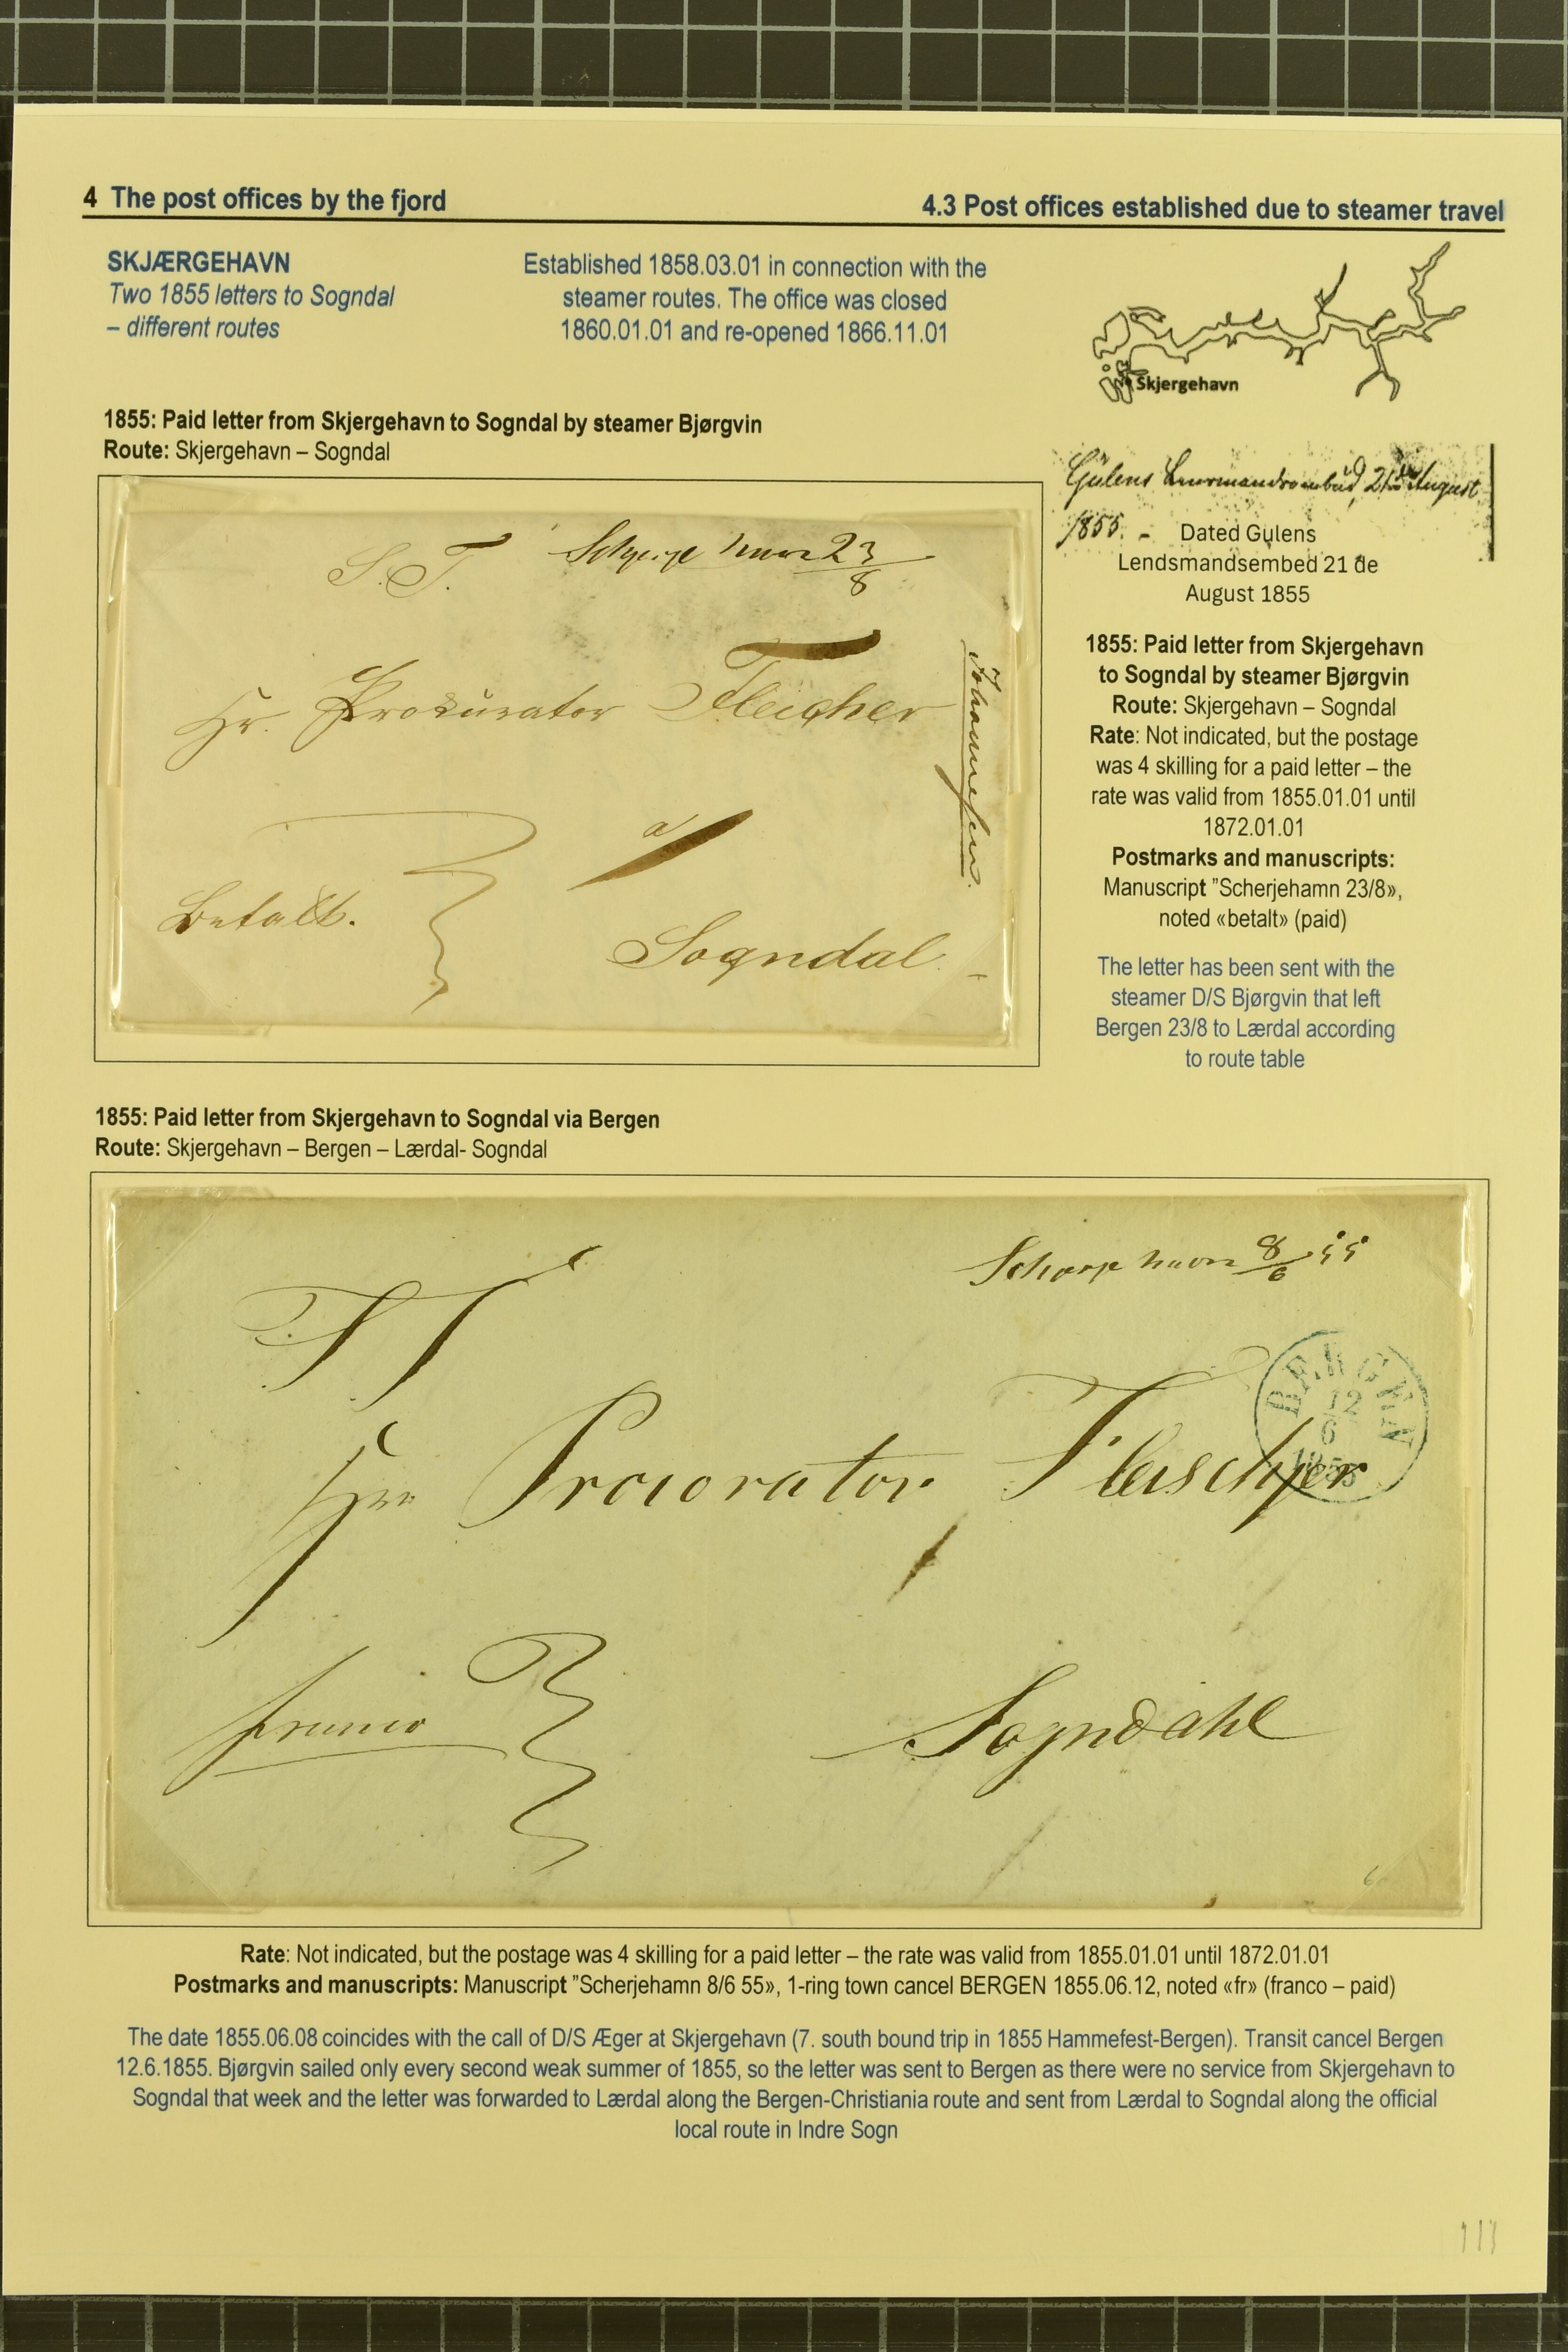 4 The post offices by the fjord
4.3 Post offices established due to steamer travel
SKJÆRGEHAVN
Two 1855 letters to Sogndal
– different routes
Established 1858.03.01 in connection with the
steamer routes. The office was closed
1860.01.01 and re-opened 1866.11.01
Skjergehavn
1855: Paid letter from Skjergehavn to Sogndal by steamer Bjørgvin
Route: Skjergehavn – Sogndal
S. T.
23/8
Hr. Prokurator Fleicher
Johannesen.
a/
Betalt.
Sogndal.
Gulens 21de August
1855. -
Dated Gulens
Lendsmandsembed 21 de
August 1855
1855: Paid letter from Skjergehavn
to Sogndal by steamer Bjørgvin
Route: Skjergehavn – Sogndal
Rate: Not indicated, but the postage
was 4 skilling for a paid letter – the
rate was valid from 1855.01.01 until
1872.01.01
Postmarks and manuscripts:
Manuscript ”Scherjehamn 23/8»,
noted «betalt» (paid)
The letter has been sent with the
steamer D/S Bjørgvin that left
Bergen 23/8 to Lærdal according
to route table
1855: Paid letter from Skjergehavn to Sogndal via Bergen
Route: Skjergehavn – Bergen – Lærdal- Sogndal
8/6 55
S T
BERGEN
12
6
1855
Procorator Fleischer
Sogndahl
Rate: Not indicated, but the postage was 4 skilling for a paid letter – the rate was valid from 1855.01.01 until 1872.01.01
Postmarks and manuscripts: Manuscript ”Scherjehamn 8/6 55», 1-ring town cancel BERGEN 1855.06.12, noted «fr» (franco – paid)
The date 1855.06.08 coincides with the call of D/S Æger at Skjergehavn (7. south bound trip in 1855 Hammefest-Bergen). Transit cancel Bergen
12.6.1855. Bjørgvin sailed only every second weak summer of 1855, so the letter was sent to Bergen as there were no service from Skjergehavn to
Sogndal that week and the letter was forwarded to Lærdal along the Bergen-Christiania route and sent from Lærdal to Sogndal along the official
local route in Indre Sogn